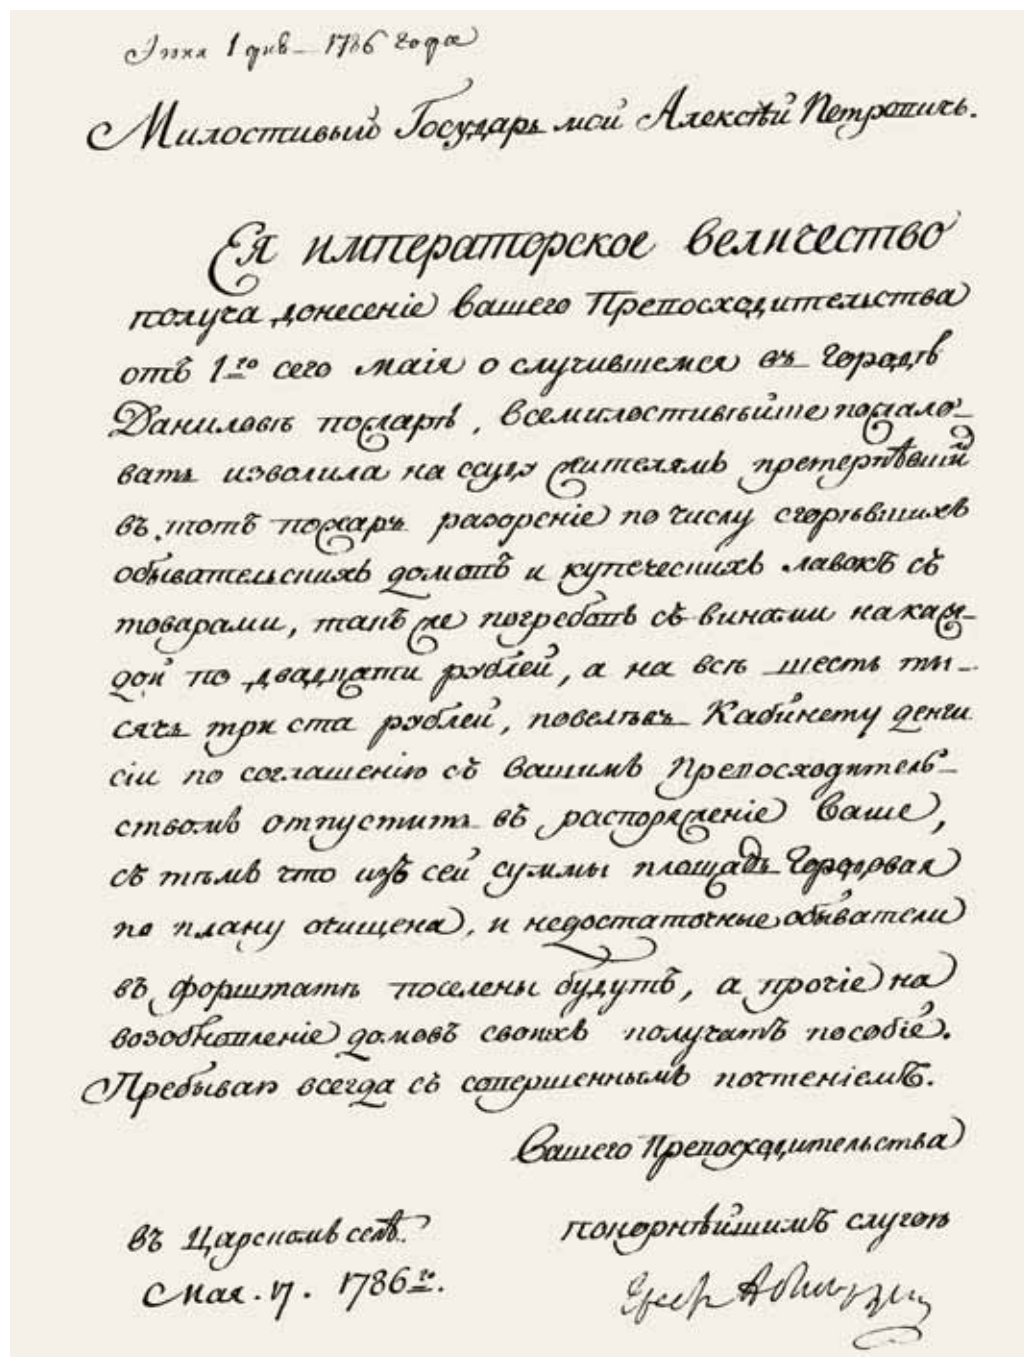 1786 года
Милостивый Государь мой Алексѣй Петровичь.
Ея императорское величество
получа донесеніе вашего Превосходительства
отъ 1го сего маія о случившемся въ городѣ
Даниловѣ пожарѣ, всемилостивѣйше пожало-
вать изволила на ссуду жителямъ претерпѣвшій
въ тотъ пожаръ разореніе по числу сгорѣвшихъ
обывательскихъ домовъ и купеческихъ лавокъ съ
товарами, такъ же погребовъ съ винами на каж-
дой по двадцати рублей, а на всѣ шесть ты-
сячь три ста рублей, повелѣвъ Кабинету денги
сіи по соглашенію съ вашимъ Превосходитель-
ствомъ отпустить въ распоряженіе Ваше,
съ тѣмъ что изъ сей суммы площадь Городовая
по плану очищена, и недостаточные обыватели
въ форштатѣ поселены будутъ, а прочіе на
возобновленіе домовъ своихъ получатъ пособіе.
Пребывая всегда съ совершеннымъ почтеніемъ.
Вашего Превосходительства
покорнѣйшимъ слугою
въ Царскомъ селѣ.
Мая. 17. 1786го.